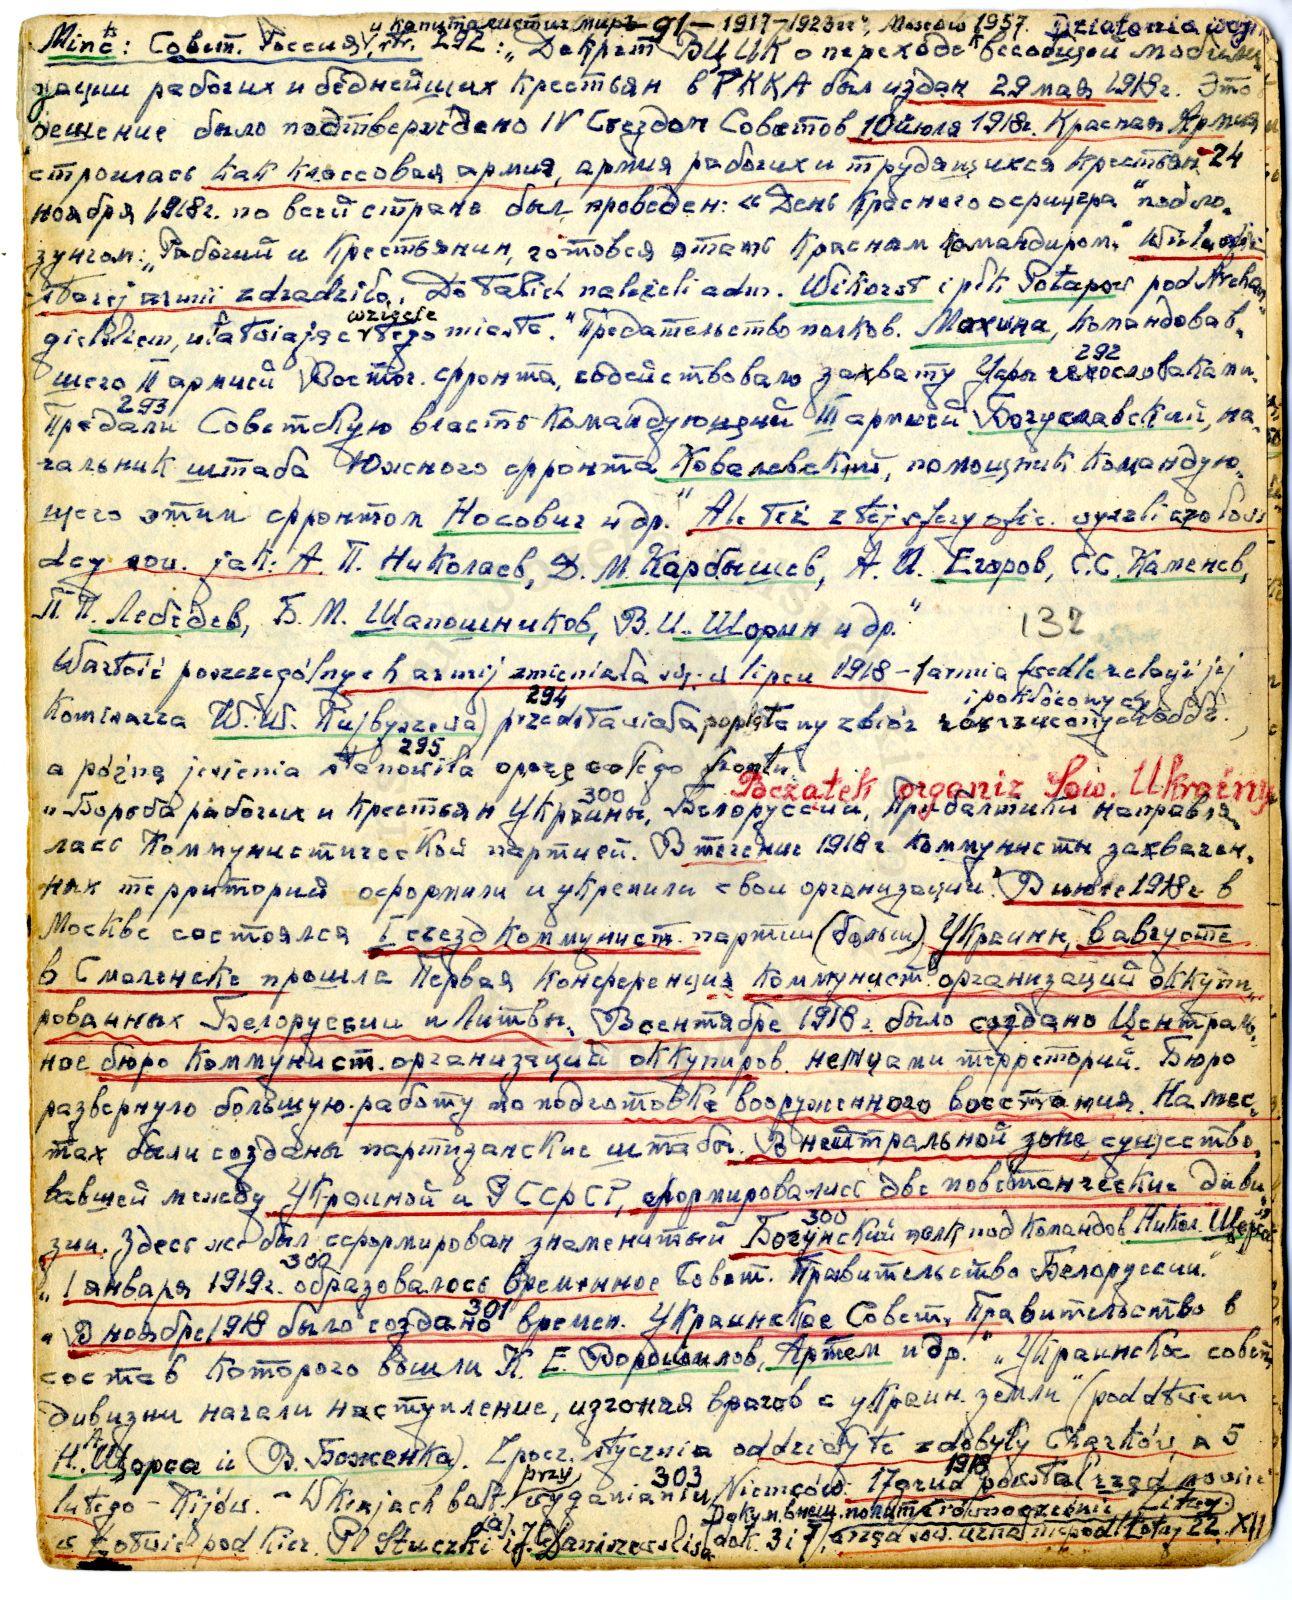 и капиталистич. мир – 91 – 1917–1923 гг", Moscow 1957. Działania wojn
Minc: Совет. Россия, str. 292: „Декрет ВЦИК о переходе к всеобщей мобили
зации рабочих и беднейших крестьян в РККА был издан 29 мая 1918 г. Это
решение было подтверждено IV Съездом Советов 10 июля 1918 г. Красная Армия
строилась как классовая армия, армия рабочих и трудящихся крестьян. 24
ноября 1918 г. по всей стране был проведен: «День красного офицера" под ло-
зунгом: „Рабочий и крестьянин, готовся стать красным командиром."
starej armii zdradziło. Do takich należeli adm. Wikorst i płk Potapow pod Archan-
wzięcie
gielskiem, ułatwiając tego miasta. "Предательство полков. Махина, командовав-
292
шего II армией Восточ. фронта, содействовало захвату Уфы чехословаками.
293
Предали Советскую власть командующий III армией Богуславский, на-
чальник штаба Южного фронта Ковалевский, помощник командую-
щего этим фронтом Носович и др." Ale też z tej sfery ofic. wyszli czołowi
dcy sow. jak: А. П. Николаев, Д. М. Карбышев, А. И. Егоров, С. С. Каменев,
П. П. Лебедев, Б. М. Шапошников, В. И. Шорин и др."
132
Wartość poszczególnych armij zmieniała się: w lipcu 1918 – 1 armia wedle relacji jej
294 i pokłóconych
komisarza W. W. Kujbyszewa, przedstawiała poplątany zbiór rozrzuconych oddz.,
295
a późną jesienią stanowiła oparcie całego frontu.
Początek organiz Sow. Ukrainy
300
„Борьба рабочих и крестьян Украины, Белоруссии, Прибалтики направля-
лась Коммунистической партией. В течение 1918 г коммунисты захвачен-
ных территорий оформили и укрепили свои организации. В июле 1918 г в
Москве состоялся I съезд Коммунист. партии (больш) Украины, в августе
в Смоленске прошла Первая конференция коммунист. организаций оккупи-
рованных Белоруссии и Литвы. В сентябре 1918 г. было создано Централь-
ное бюро коммунист. организаций оккупиров. немцами территорий. Бюро
развернуло большую работу по подготовке вооруженного восстания. На мес-
тах были созданы партизанские штабы. В нейтральной зоне, существо-
вавшей между Украиной и РСФСР, формировались две повстанческие диви-
300
зии. Здесь же был сформирован знаменитый Богунский полк под командов Никол. Щорса
300
„1 января 1919 г. образовалось Временное Совет. Правительство Белоруссии."
301
„В ноябре 1918 было создано времен. Украинское Совет. Правительство в
состав которого вошли К. Е. Ворошилов, Артем и др." „Украинские совет
дивизии начали наступление, изгоняя врагов с украин. земли" (pod dtwem
Н. А. Щорса и В. Боженка). Z pocz. stycznia oddziały te zdobyły Charków a 5
przy 303 1918
lutego – Kijów. – W krajach bałt. wyganianiu Niemców. 17 grud powstał rząd
Докум. внеш. полит równocześnie Litwy.
w Łotwie pod kier. P. Stuczki i J. Daniszewskisa (dok. 3 i 7), rząd sow. uznał niepodl Łotwy 22. XII